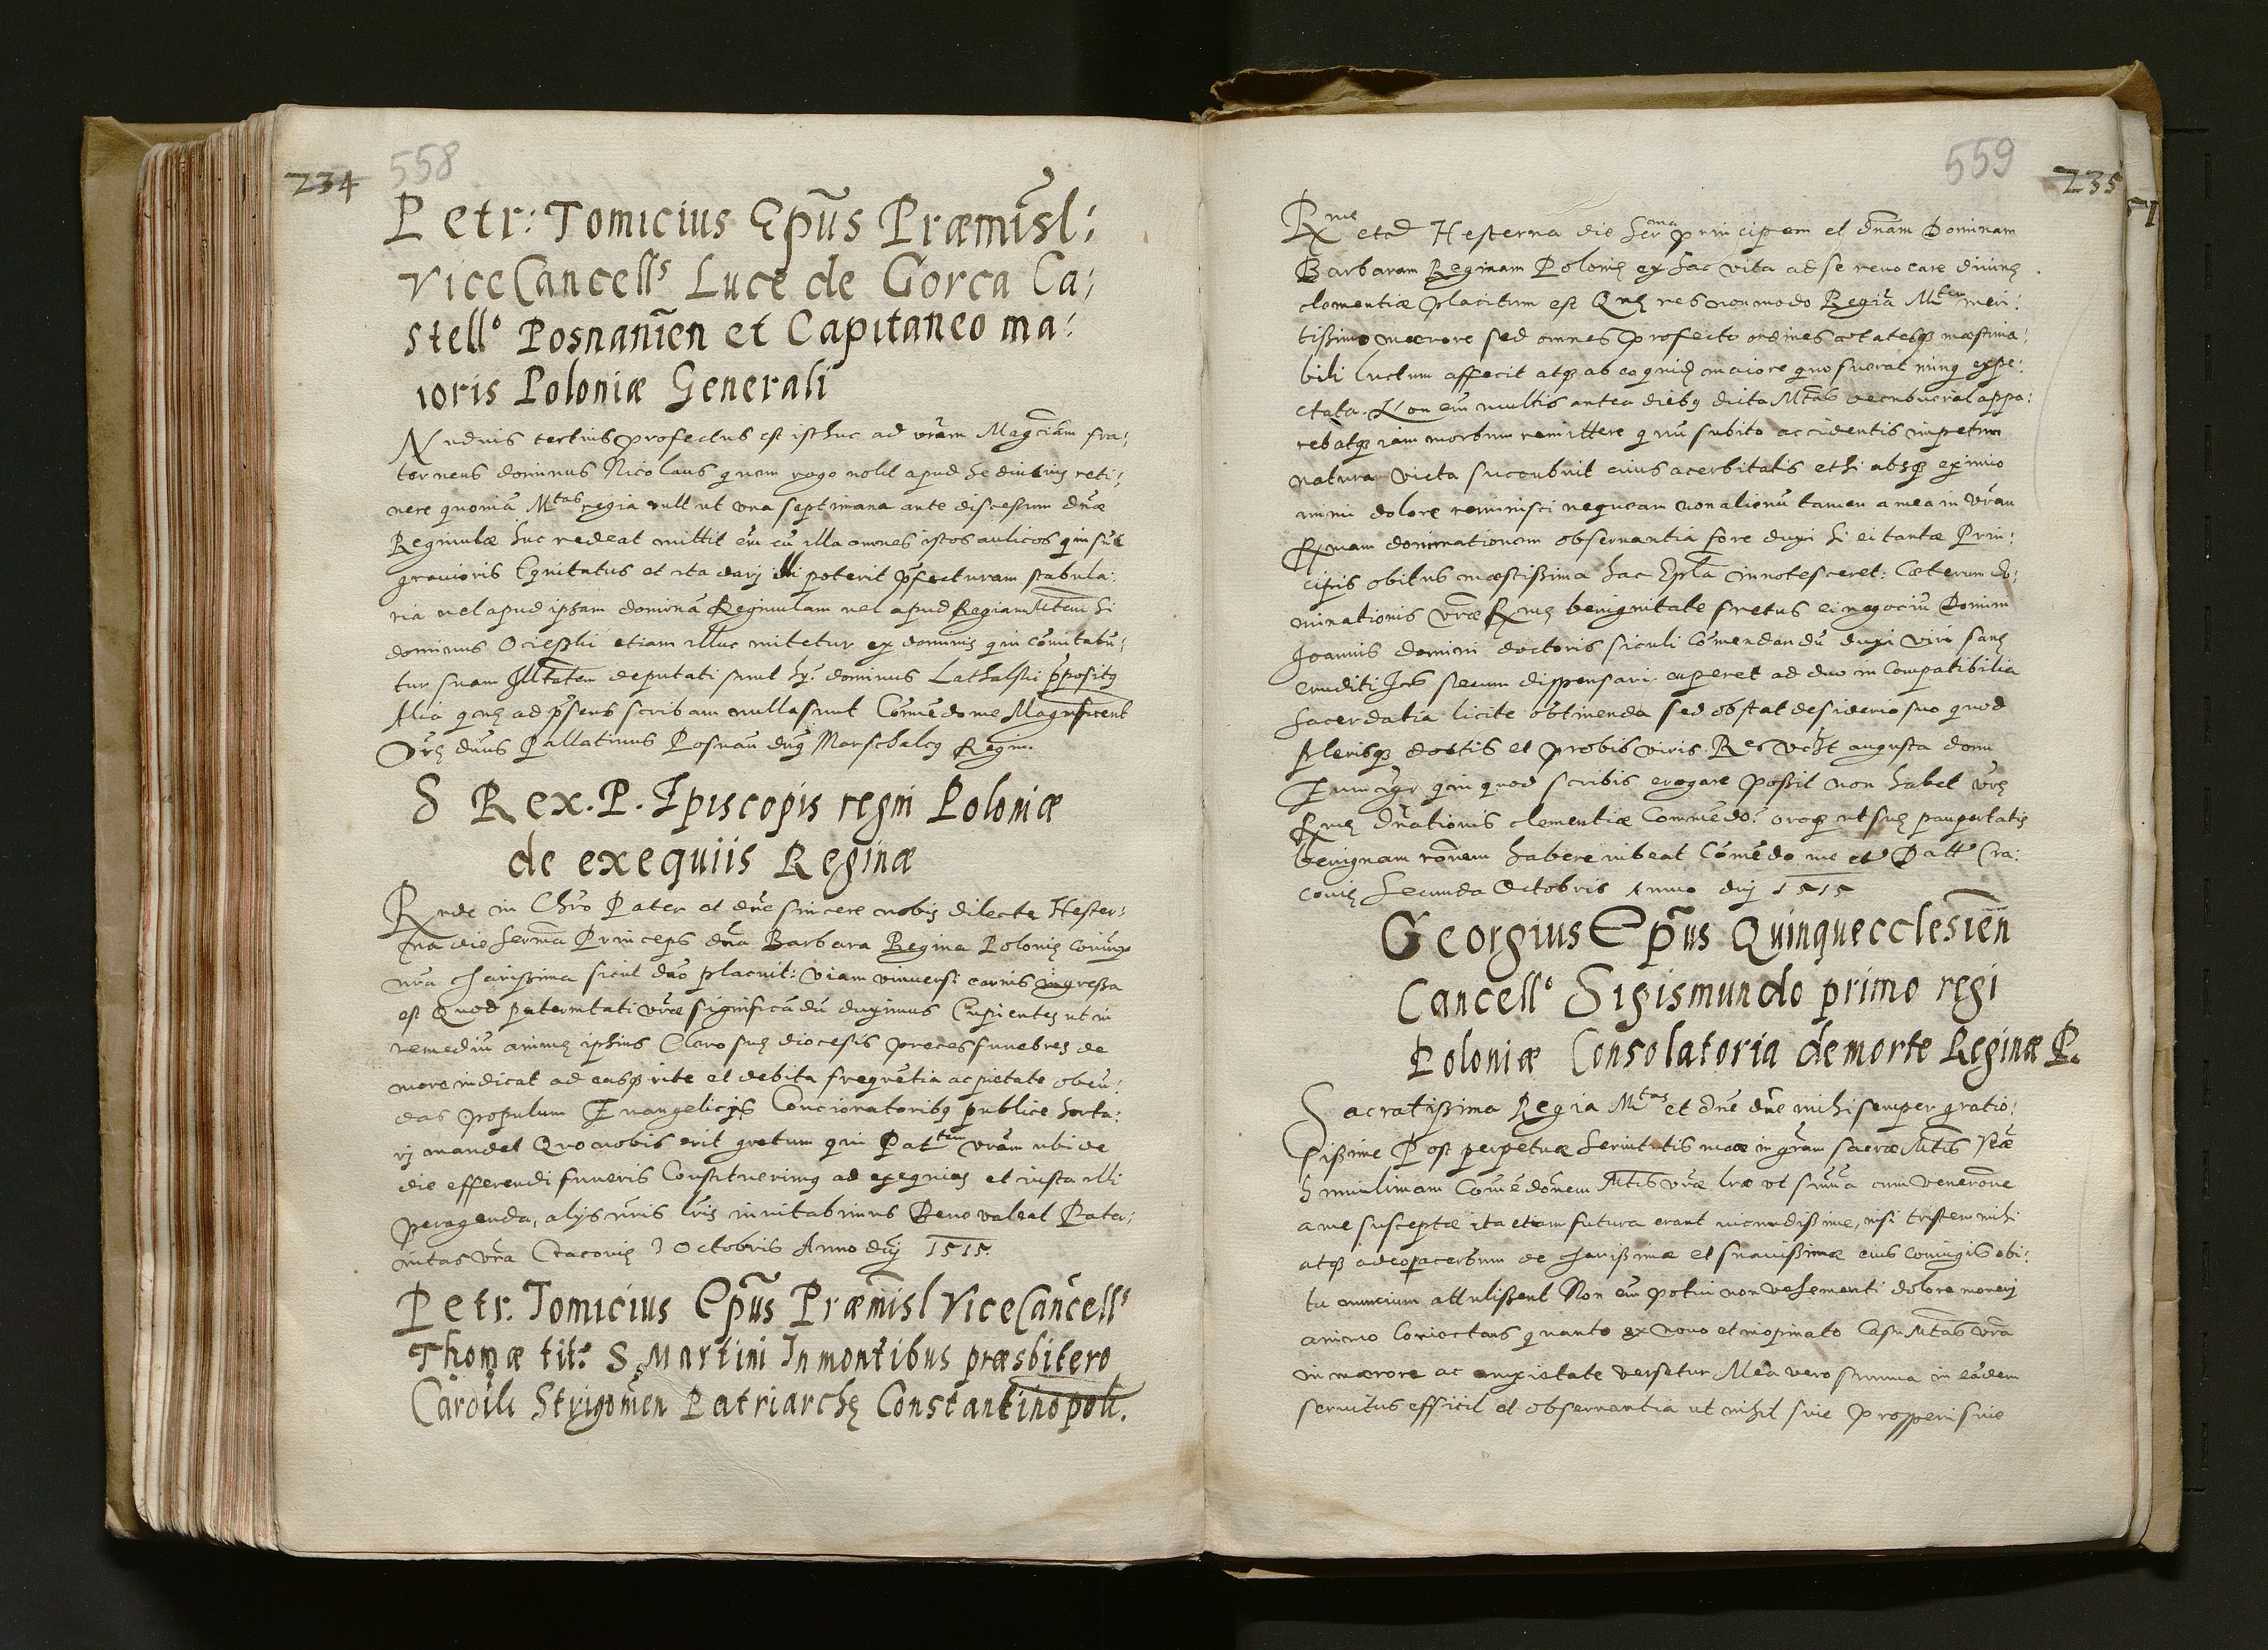 234 558
Petr: Tomicius Ep̃us Præmisl:
ViceCancellˢ Luce de Gorca Ca:
stellº Posnanien̄ et Capitaneo ma:
ioris Poloniæ Generali
Nudius tertius profectus est isthuc ad vr̄am Magc̄iam fra:
ter meus dominus Nicolaus quem rogo nolit apud se diutius reti:
nere quoniā Mtas regia vult ut una septimana ante discessum dn̄æ
Reginulæ huc redeat mittit em̄ cū illa omnes istos aulicos qui sūt
gravioris Equitatus et ita darj illi poterit p̄fecturam stabula:
ria vel apud ipsam dominā Reginulam vel apud Regiam Mtem si
dominus Ociessky etiam illuc mitetur ex dominis qui comitabū:
tur suam Illtatem deputati sunt hy: dominus Lathalski p̄positq
Alia quę ad p̄sens scribam nulla sunt Com̄edo me Magnificent
Vr̄ę dn̄us Pallatinus Posnan̄ dn̄q Marschalcq Regin.
S Rex. P. Episcopis regni Poloniæ
de exequiis Reginæ
Rnde in Chr̄o Pater et dn̄e sincere nobis dilecte Hester:
na die serm̄a Princeps dn̄a Barbara Regina Polonię coniunx
nr̄a charissima sicut deo placuit: viam universi carnis ingressa
est Quod paternitati vr̄æ significādū duximus Cupientes ut in
remediū animę ipsius Clero suę diocesis preces funebres de
more indicat ad easq̨ rite et debita frequētia ac pietate obeū:
das populum Evangelicis Concionatoribq publice horta:
rj mandet Quo nobis erit gratum qui Pattem vr̄am ubi de
die efferendi funeris Constituerimq ad exequias et iusta illi
peragenda, alys nr̄is lr̄is invitabimus Bene valeat Pater:
nitas vr̄a Cracovię 3 Octobris Anno dnj 1515.
Petr. Tomicius Ep̃us Præmisl ViceCancellˢ
Thomæ titº S Martini In montibus præsbitero
Cardili Strigomen Patriarchę Constantinopoli.
559 235
51
Rme etc Hesterna die Serma principem et dn̄am Dominam
Barbaram Reginam Polonię ex hac vita ad se revocare divinę
clementiæ placitum est Quę res non modo Regiā Mtem meri:
tissimo mœrore sed omnes profecto ordines ætatesq̨ inæstima:
bili luctum affecit atq̨ ab eo quidē maiore quo fuerat minq expe:
ctata. Non em̄ multis antea diebq dicta Mtas decubuerat appa:
rebatq̨ iam morbum remittere quū subito accidentis impetum
natura victa succubuit cuius acerbitatis etsi absq̨ eximio
animi dolore reminisci nequeam non alienū tamen a mea in vr̄am
Rmam dominationem observantia fore duxi si ei tantæ Prin:
cipis obitus mœstissima hac Epl̄a innotesceret: Cæterum do:
minationis vr̄æ Rmę benignitate fretus ei negociū Domini
Joannis domini doctoris siculi Com̄endandū duxi viri sanę
eruditi Is secum dispensari cuperet ad duo in Compatibilia
sacerdotia licite obtinenda sed obstat desiderio suo quod
plerisq̨ doctis et probis viris. Res vȝt angusta domi
Eum igr qui quod scribis erogare possit non habet vr̄ę
Rmę dn̄ationis clementiæ Commēdo: oroq̨ ut suę paupertatis
benignam ron̄em habere iubeat Com̄ēdo me etc Datt Cra:
covię Secunda Octobris Anno dnj 1515
Georgius Ep̃us Quinquecclesien̄
Cancellº Sigismundo primo regi
Poloniæ Consolatoria de morte Reginæ P.
Sacratissima Regia Mtas et dn̄e dn̄e mihi semper gratio:
sissime Post perpetuæ servitutis meæ in gr̄am sacræ Mtis Vr̄æ
humilimam Com̄ēdōnem Mtis vr̄æ lr̄æ ut sum̄a cum venerōne
a me susceptæ ita etiam futura erant iucundissime, nisi tristem mihi
atq̨ adeo peracerbum de charissimæ et suavissimæ eius coniugis obi:
tu nuncium attulissent Non em̄ potui non vehementi dolore moverj
animo Coniectans quanto ex novo et inopinato Casu Mtas vr̄a
in mœrore ac anxietate versetur Mea vero summa in eādem
servitus efficit et observantia ut nihil sive prosperi sive